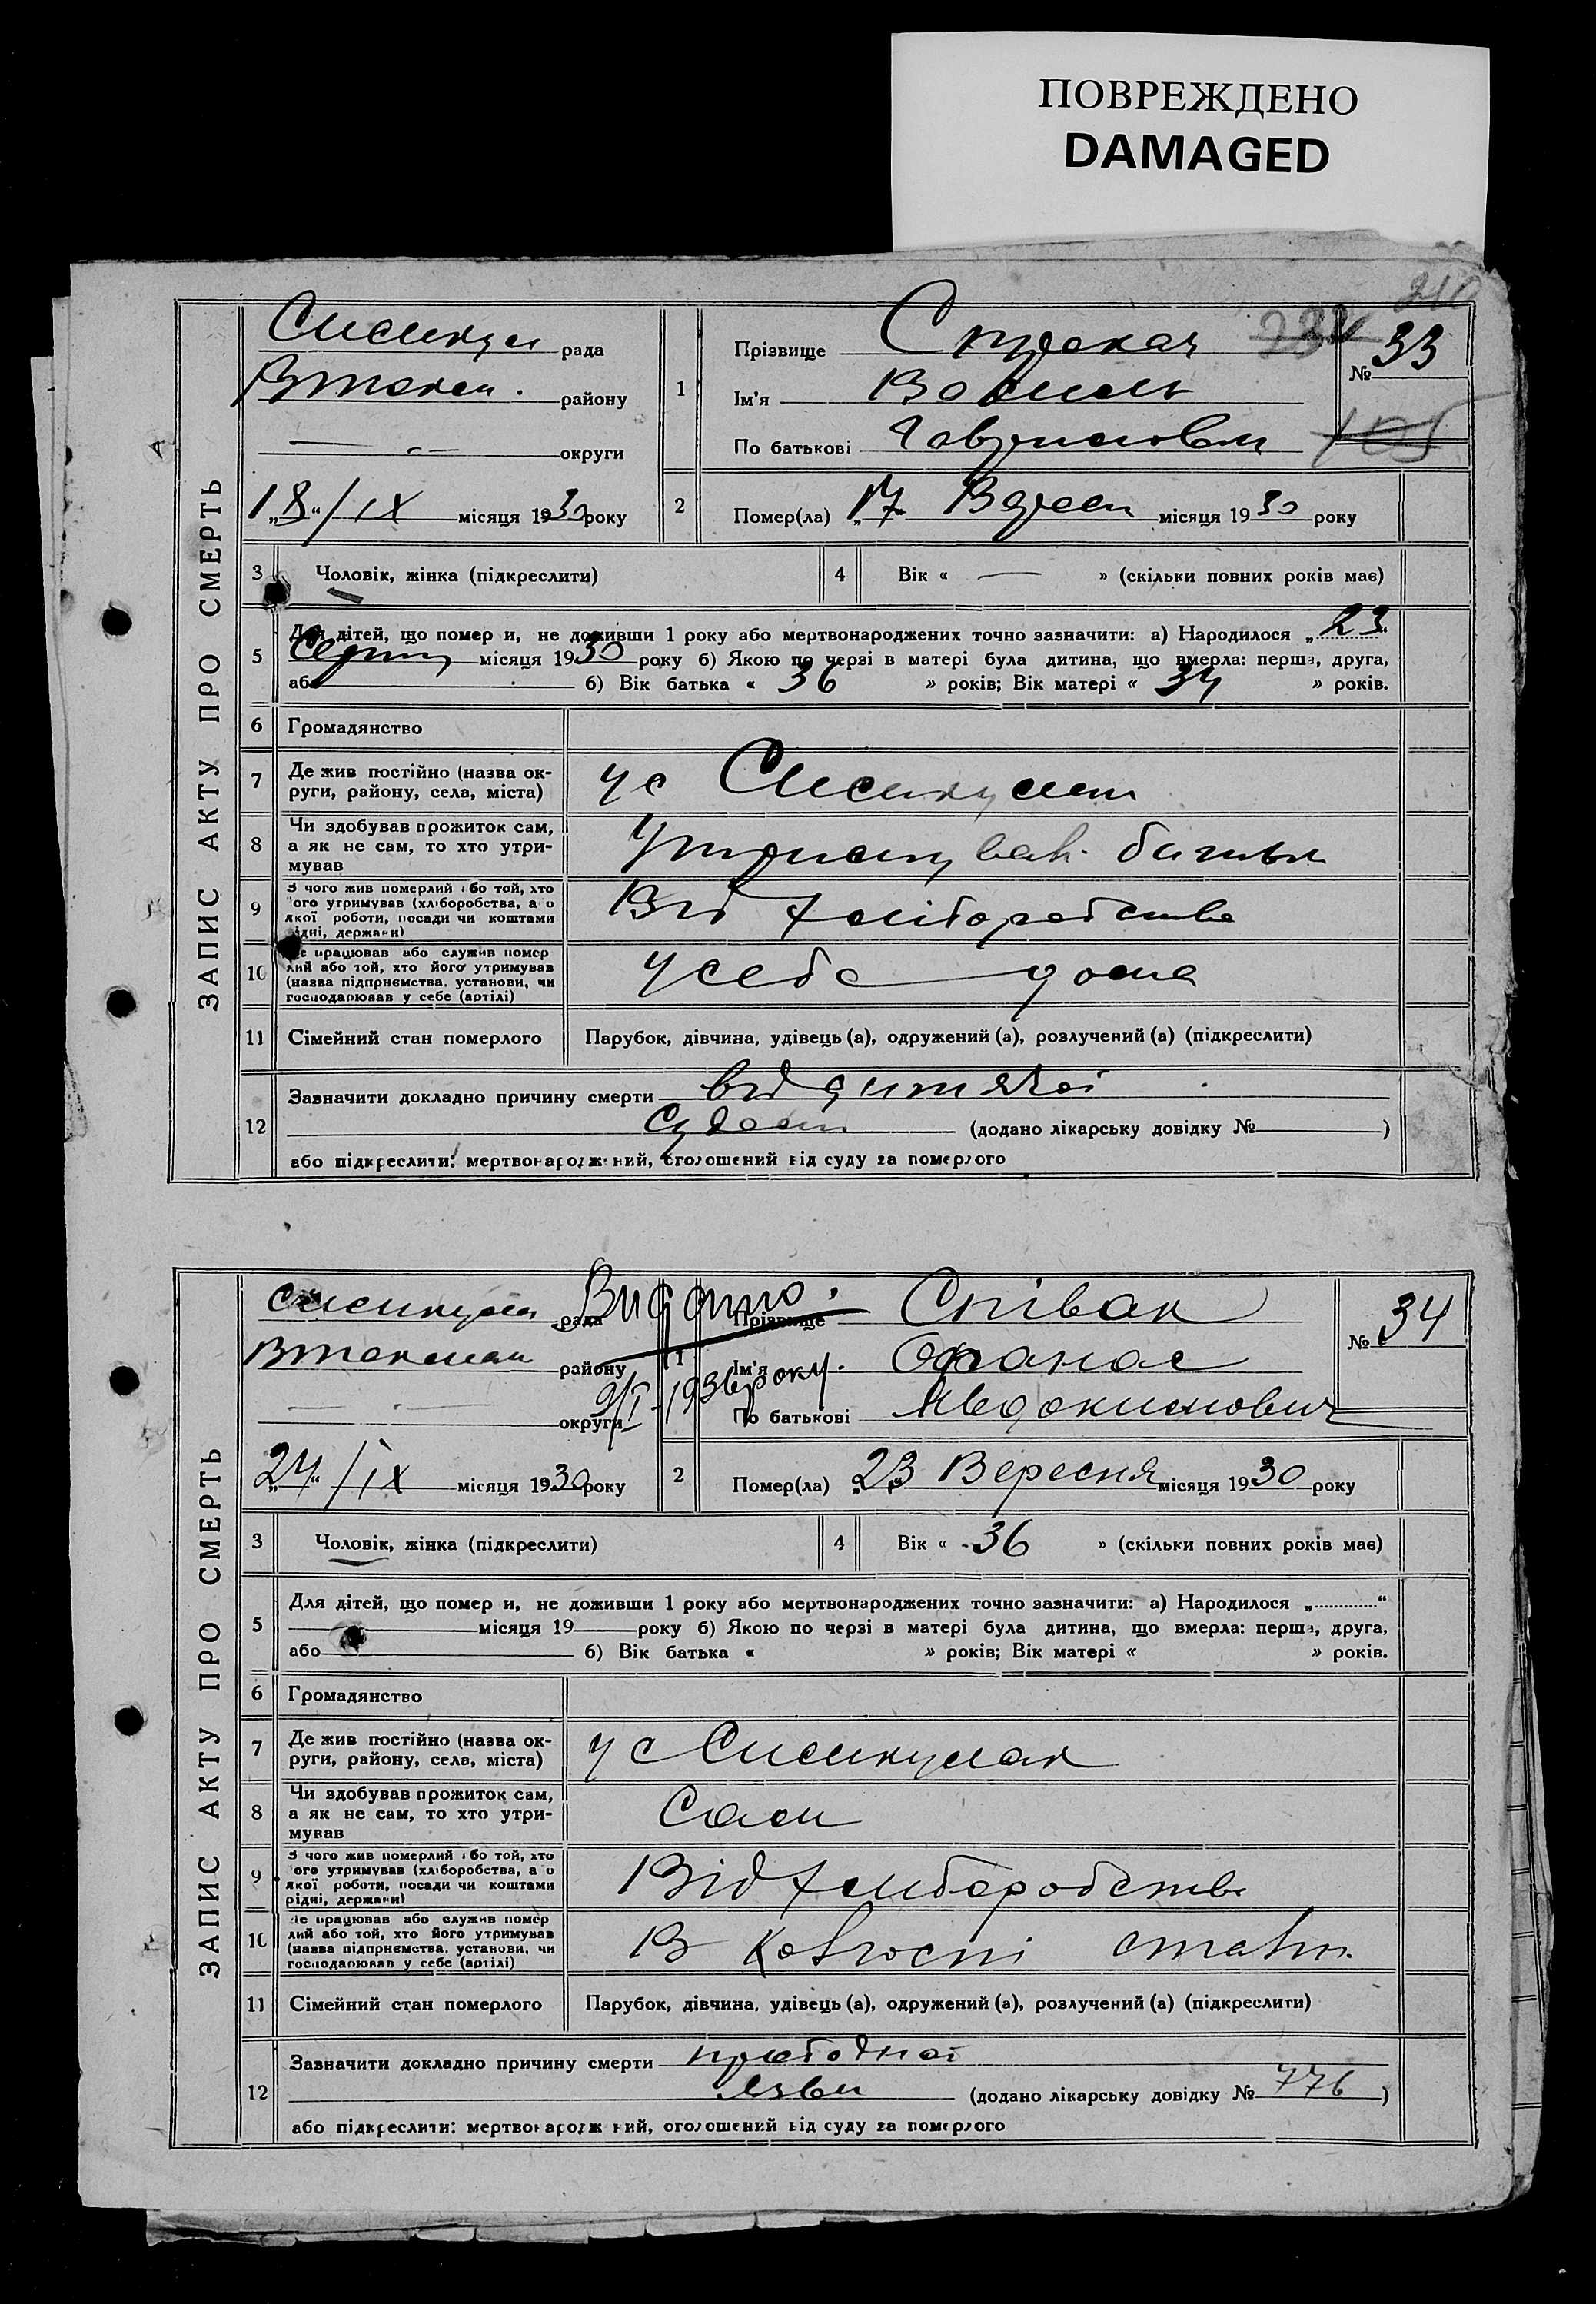 ПОВРЕЖДЕНО
DAMAGED
ЗАПИС АКТУ ПРО СМЕРТЬ
рада
району
округи
"18"/IX місяця 1930 року
1
Прізвище
Ім'я Василь
По батькові
№ 33
105
2
Помер(ла) "17" місяця 1930 року
3
Чоловік, жінка (підкреслити)
4
Вік « — » (скільки повних років має)
5
Для дітей, що помер и, не доживши 1 року або мертвонароджених точно зазначити: а) Народилося „23“
місяця 1930 року б) Якою по черзі в матері була дитина, що вмерла: перша, друга,
або б) Вік батька « 36 » років; Вік матері « 34 » років.
6
Громадянство
7
Де жив постійно (назва ок-
руги, району, села, міста)
у с
8
Чи здобував прожиток сам,
а як не сам, то хто утри-
мував
9
З чого жив померлий або той, хто
його утримував (хліборобства, або
якої роботи, посади чи коштами
рідні, держави)
Від хліборобства
10
Де працював або служив помер
лий або той, хто його утримував
(назва підприємства, установи, чи
господарював у себе (артілі)
у себе дома
11
Сімейний стан померлого
Парубок, дівчина, удівець (а), одружений (а), розлучений (а) (підкреслити)
12
Зазначити докладно причину смерти від
(додано лікарську довідку № )
або підкреслити: мертвонароджений, оголошений від суду за померлого
ЗАПИС АКТУ ПРО СМЕРТЬ
рада
району
округи
Видано.
9/I-1936 року.
"24"/IX місяця 1930 року
1
Прізвище Співак
Ім'я Опанас
По батькові Явдокимович
№ 34
2
Помер(ла) "23" Вересня місяця 1930 року
3
Чоловік, жінка (підкреслити)
4
Вік « 36 » (скільки повних років має)
5
Для дітей, що помер и, не доживши 1 року або мертвонароджених точно зазначити: а) Народилося „ “
місяця 19 року б) Якою по черзі в матері була дитина, що вмерла: перша, друга,
або б) Вік батька « » років; Вік матері « » років.
6
Громадянство
7
Де жив постійно (назва ок-
руги, району, села, міста)
у с
8
Чи здобував прожиток сам,
а як не сам, то хто утри-
мував
Сам
9
З чого жив померлий або той, хто
його утримував (хліборобства, або
якої роботи, посади чи коштами
рідні, держави)
Від хліборобства
10
Де працював або служив помер
лий або той, хто його утримував
(назва підприємства, установи, чи
господарював у себе (артілі)
В
11
Сімейний стан померлого
Парубок, дівчина, удівець (а), одружений (а), розлучений (а) (підкреслити)
12
Зазначити докладно причину смерти
язви (додано лікарську довідку № 776 )
або підкреслити: мертвонароджений, оголошений від суду за померлого